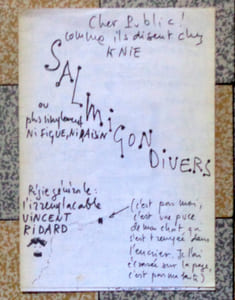 Cher Public!
comme ils disent chez
KNIE
SALMIGON
DIVERS
ou
plus simplement
NI FIGUE, NI RAISIN
Régie générale:
l'irremplaçable
VINCENT
RIDARD
(c'est pas moi,
c'est une puce
de mon chat qui
s'est trempée dans
l'encrier. Je l'ai
écrasée sur la page,
c'est pas ma faute)